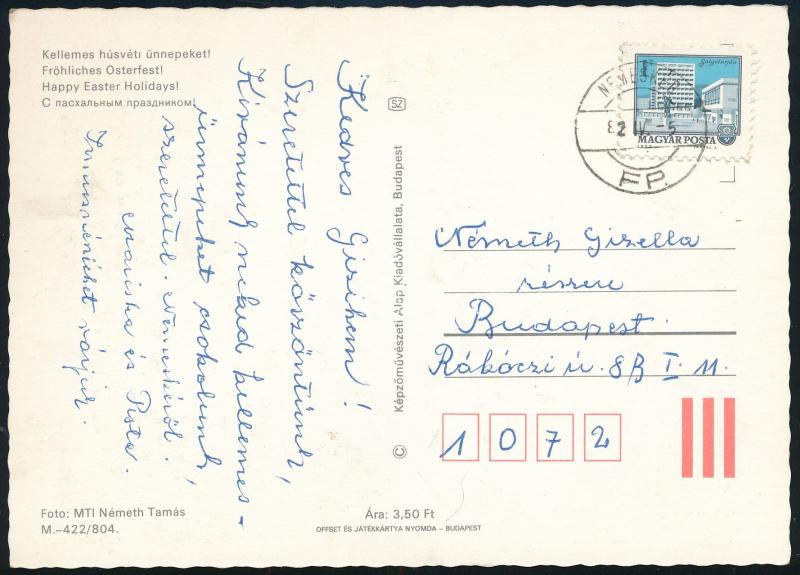 Kellemes húsvéti ünnepeket!
Fröhliches Osterfest!
Happy Easter Holidays!
С пасхальным праздником!
Kedves Gizikém!
Szeretettel köszöntünk,
Kívánunk neked kellemes
ünnepeket csokolunk,
szeretettel. Nemeskéről.
Mariska és Pista.
várjuk.
Foto: MTI Németh Tamás
M.–422/804.
© Képzőművészeti Alap Kiadóvállalata, Budapest
SZ
Ára: 3,50 Ft
OFFSET ÉS JÁTÉKKÁRTYA NYOMDA – BUDAPEST
Salgótarján
1 Ft
MAGYAR POSTA
82 IV. -5
FP.
Németh Gizella
részére
Budapest
Rákóczi ú. 8B I. 11.
1072